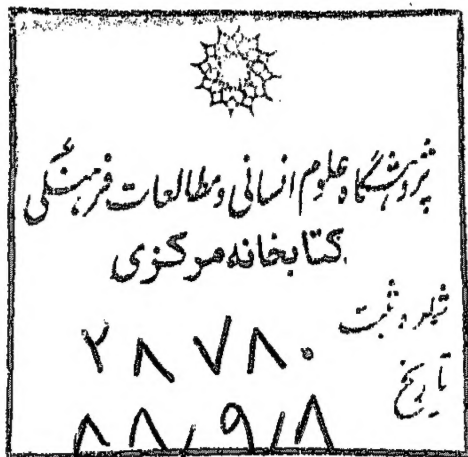 پژوهشگاه علوم انسانی و مطالعات فرهنگی
کتابخانه مرکزی
شماره ثبت ۲۸۷۸۰
تاریخ ۸۸/۹/۸